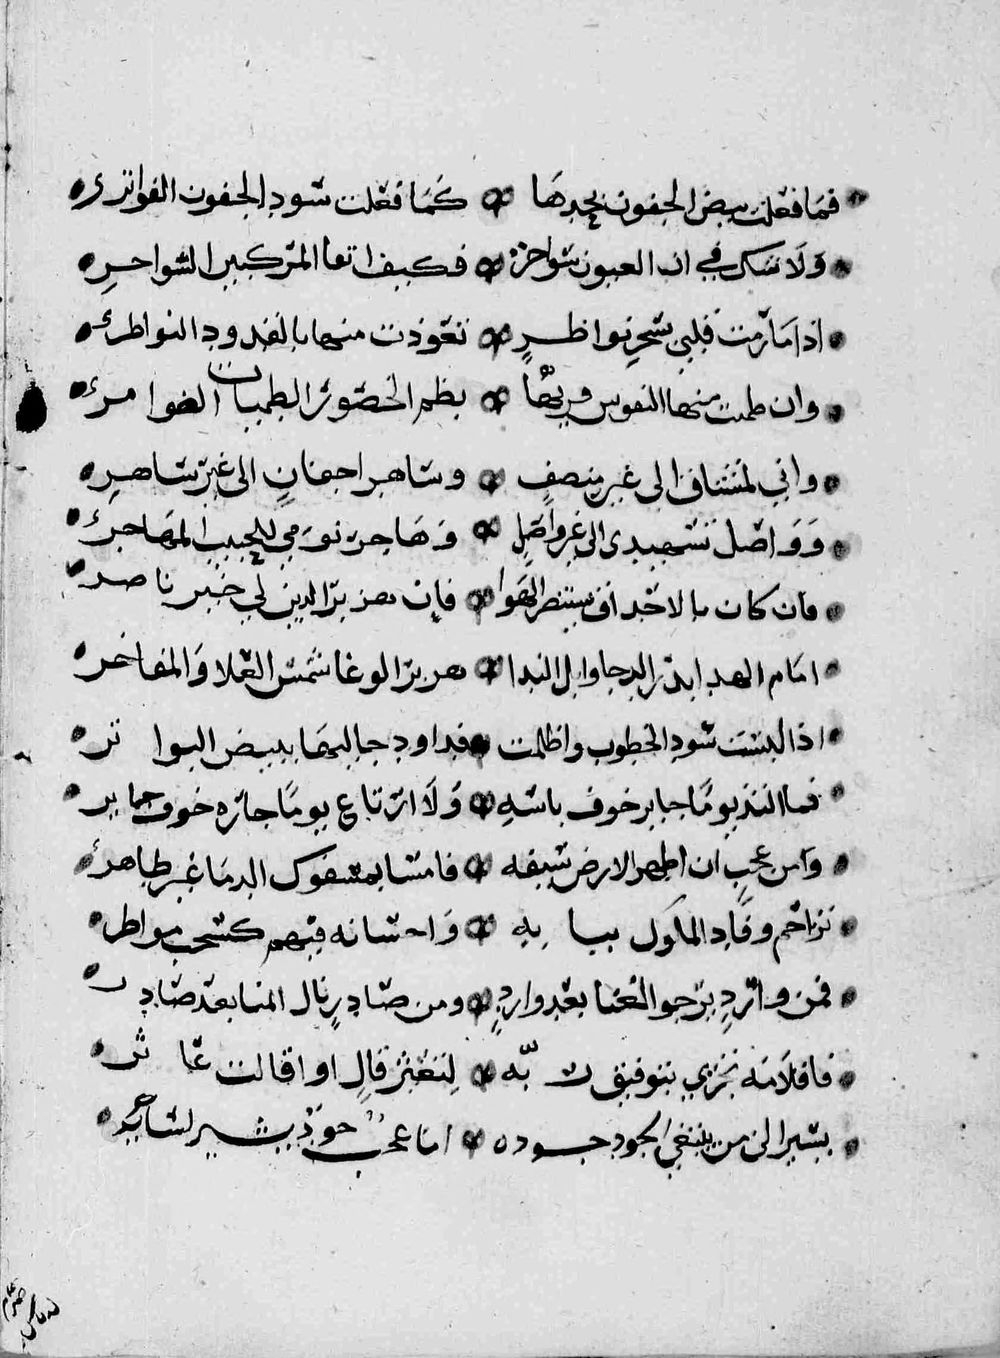 فما فعلت بيض الجفون بحدها كما فعلت سود الجفون الفواتر
ولا شك في ان العيون سواحر فكيف اتقا المركبين السواحر
اذا ما رمت قلبي بسحر نواظر تعوذت منها بالقدود النواظر
وان ظمت منها النفوس فريها بظم الخصور الظميات الضوامر
واني لمشتاق الى غير منصف وساهر اجفان الى غير ساهر
وواصل تسهيدي الى غير واصل وهاجر نومي للحبيب المهاجر
فان كان بالاحداق ينتصر الهوا فان بعز الدين لي خير ناصر
امام الهدا بدر الدجا وابل الندا هزبر الوغا شمس العلا والمفاخر
اذا لبست سود الخطوب واظلمت فداود جاليها ببيض البواتر
فما التذ يوما جابر خوف باسه ولا ارتاع يوما جاره خوف جاير
ومن عجب ان اطهر الارض سيفه فامسا بمسفوك الدما غير طاهر
تزاحم وفاد الملوك ببابه واحسانه فيهم كسحب مواطر
فمن وارد يرجو الغنا بعد وارد ومن صادر نال المنا بعد صادر
فاقلامه تجري بتوفيق ربه لتعثر قال او اقالت عاثر
بشيرا لى من يبتغي الجود جوده اما عجب جود بشير لشاعر